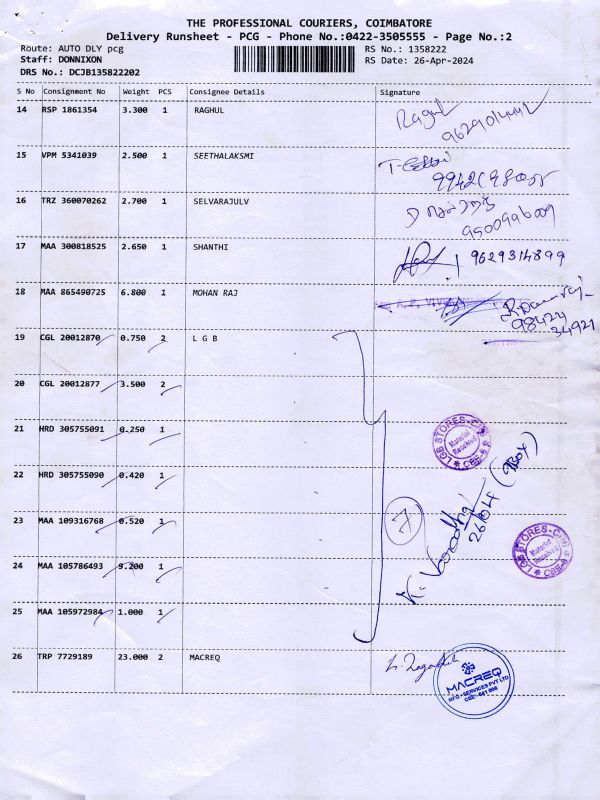 THE PROFESSIONAL COURIERS, COIMBATORE
Delivery Runsheet - PCG - Phone No.:0422-3505555 - Page No.:2
Route: AUTO DLY pcg RS No.: 1358222
Staff: DONNIXON RS Date: 26-Apr-2024
DRS No.: DCJB135822202
S No Consignment No Weight PCS Consignee Details Signature
14 RSP 1861354 3.300 1 RAGHUL
Ragul
15 VPM 5341039 2.500 1 SEETHALAKSMI
16 TRZ 360070262 2.700 1 SELVARAJULV
9500996009
17 MAA 300818525 2.650 1 SHANTHI
9629314899
18 MAA 865490725 6.800 1 MOHAN RAJ
98424
34921
19 CGL 20012870 0.750 2 L G B
20 CGL 20012877 3.500 2
21 HRD 305755091 0.250 1
LGB STORES
Material
Received
CBE-6
22 HRD 305755090 0.420 1
7
26/04
(9BOX)
23 MAA 109316768 0.520 1
LGB STORES
Material
Received
CBE-6
24 MAA 105786493 9.200 1
25 MAA 105972984 1.000 1
26 TRP 7729189 23.000 2 MACREQ
MACREQ